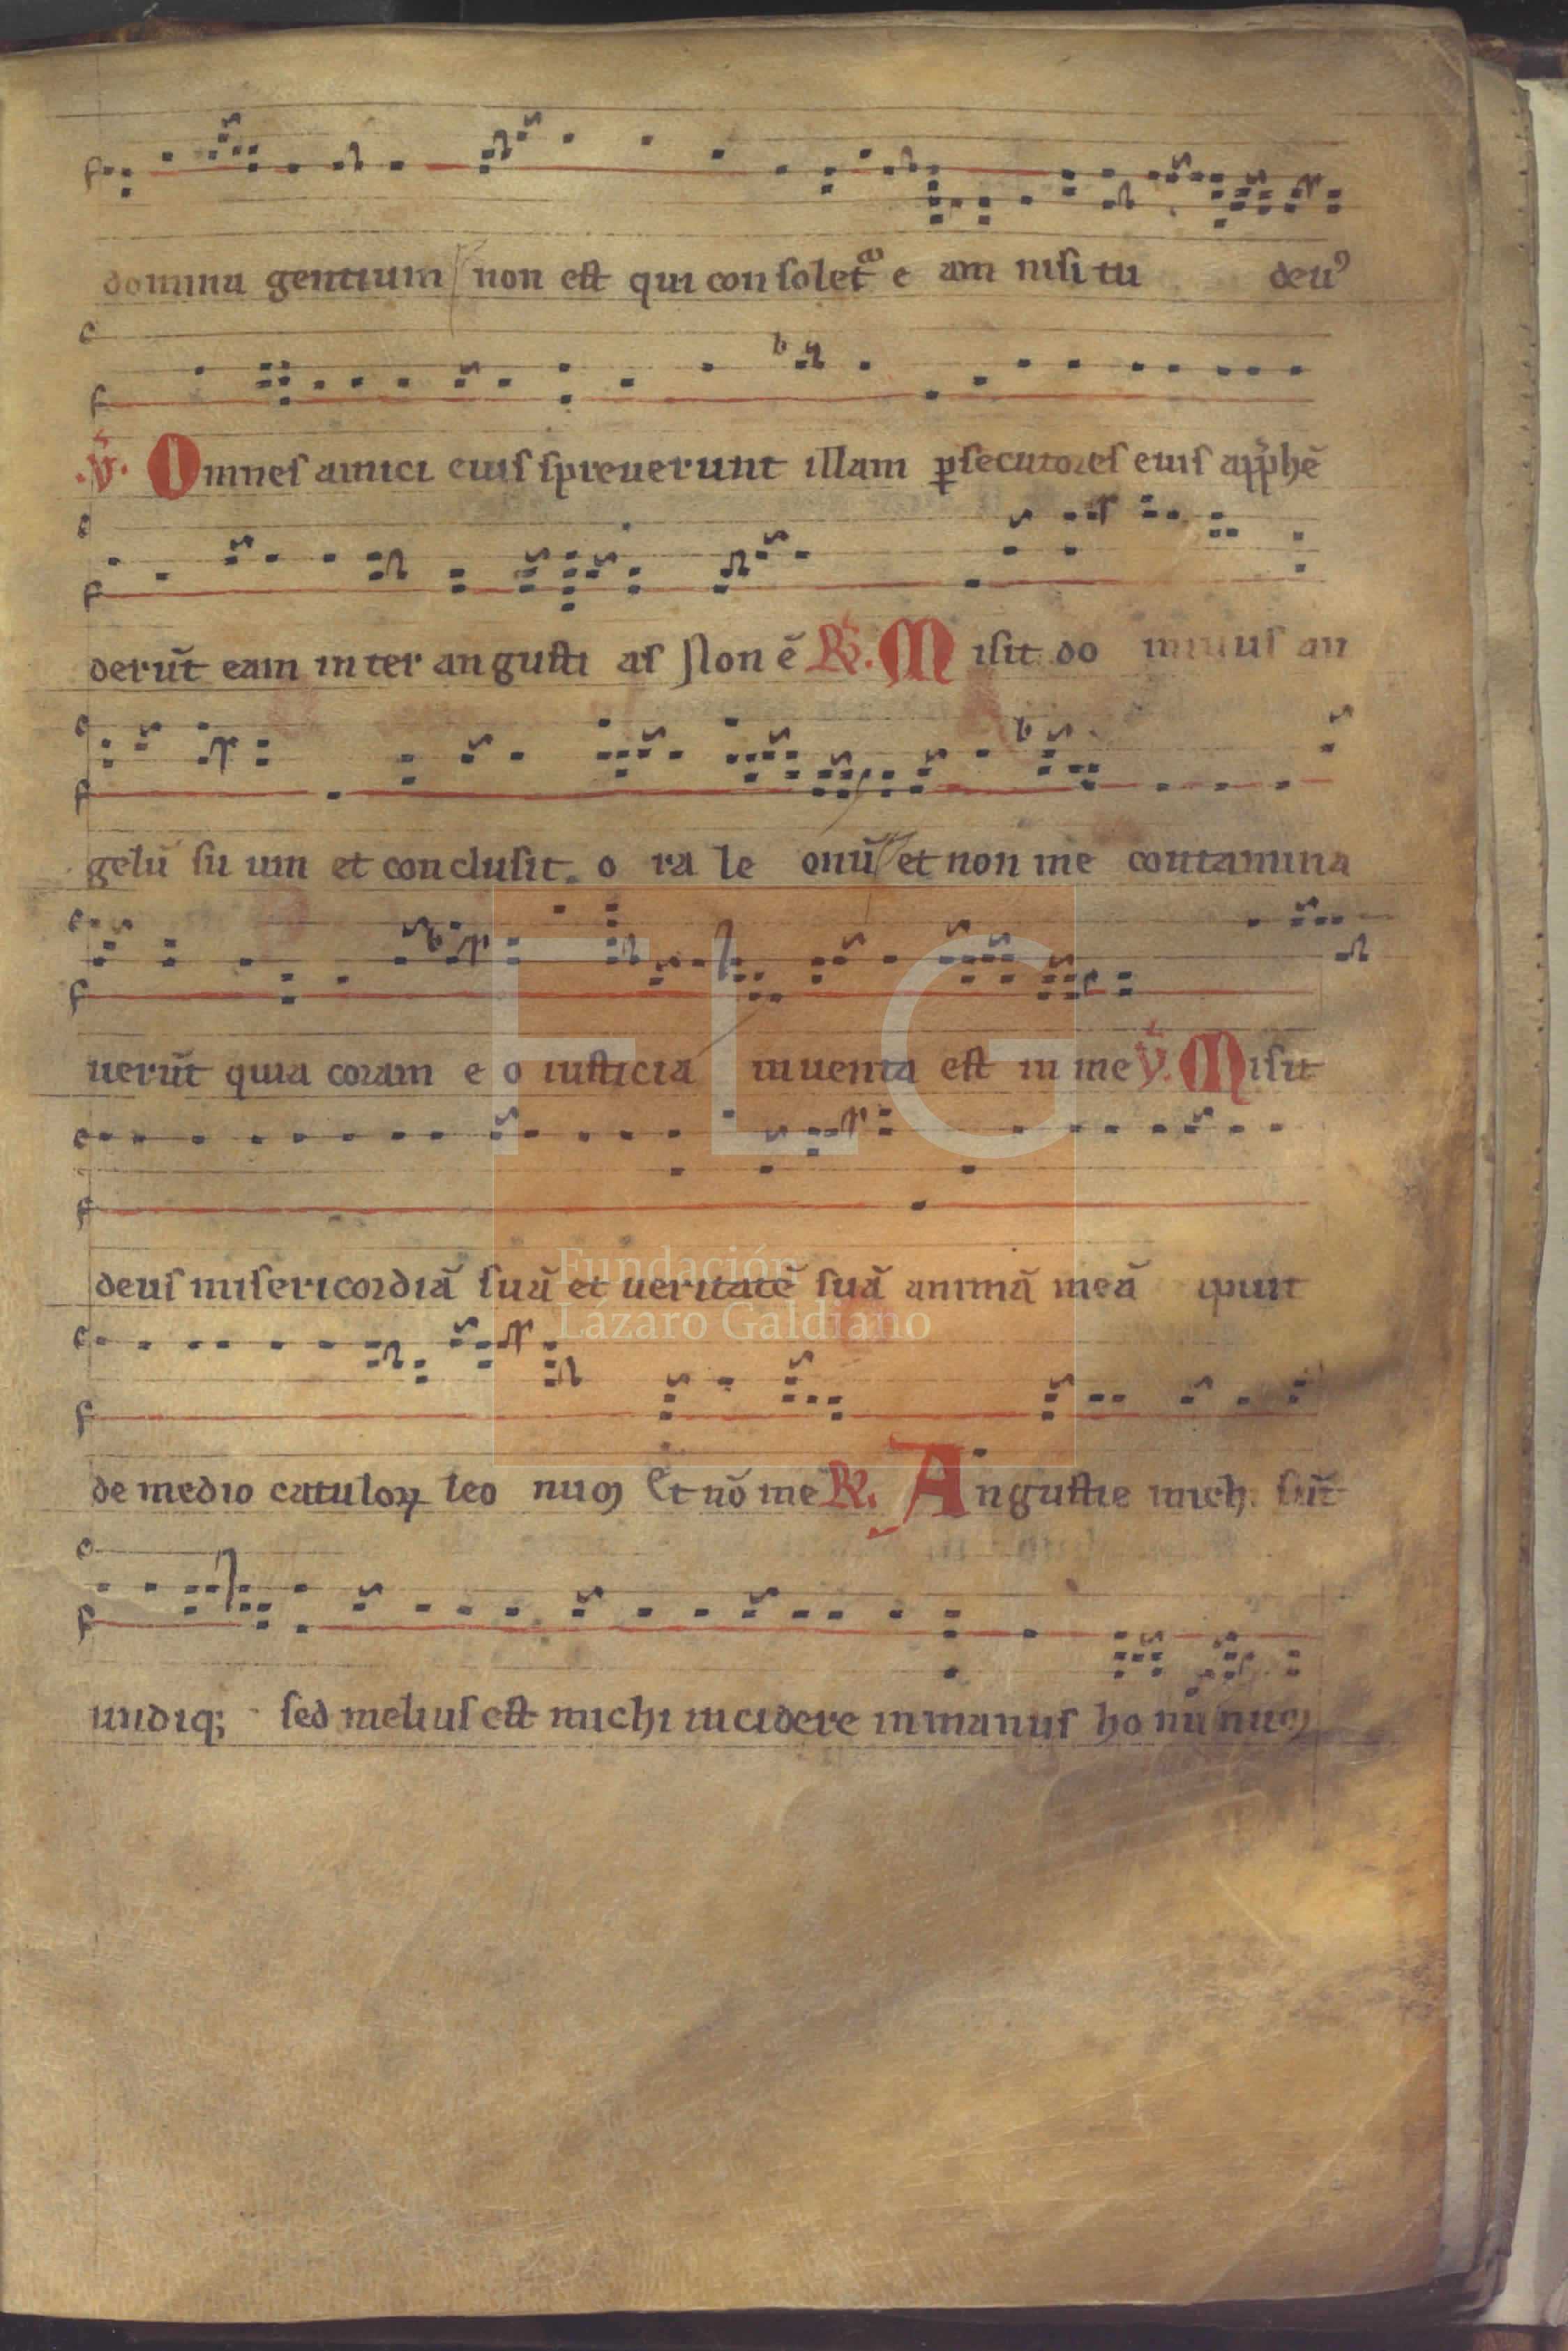 domina gentium non est qui consolet᷑ e am nisi tu deuꝰ
.℣. Omnes amici eius spreuerunt illam ꝑsecutores eius app̃hē
derūt eam inter angusti as Non ē ℟. Misit do minus an
gelū su um et conclusit o ra le onū et non me contamina
uerūt quia coram e o iusticia inuenta est in me ℣. Misit
deus misericordiā suā et ueritatē suā animā meā ipuit
de medio catuloꝝ leo nuꝫ Et nō me ℟. Angustie mich sūt
undiqꝫ sed melius est michi incidere in manus ho mi nuꝫ
FLG
Fundación
Lázaro Galdiano